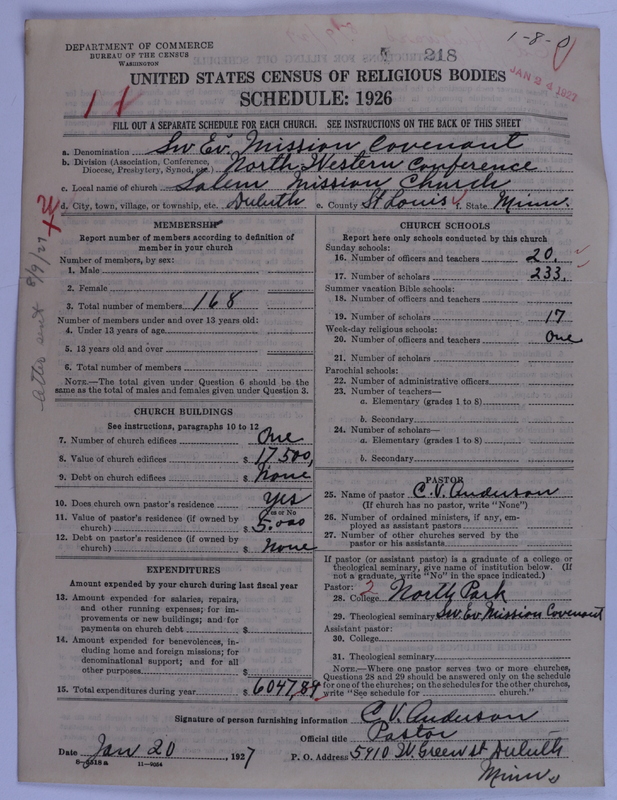 DEPARTMENT OF COMMERCE
BUREAU OF THE CENSUS
WASHINGTON
218
1-8-0
JAN 24 1927
UNITED STATES CENSUS OF RELIGIOUS BODIES
SCHEDULE: 1926
FILL OUT A SEPARATE SCHEDULE FOR EACH CHURCH. SEE INSTRUCTIONS ON THE BACK OF THIS SHEET
a. Denomination Sw Ev. Mission Covenant
b. Division (Association, Conference, Diocese, Presbytery, Synod, etc.) North Western Conference
c. Local name of church Salem Mission Church
d. City, town, village, or township, etc. Duluth e. County St Louis f. State Minn.
MEMBERSHIP
Report number of members according to definition of
member in your church
Number of members, by sex:
1. Male
2. Female
3. Total number of members 168
Number of members under and over 13 years old:
4. Under 13 years of age
5. 13 years old and over
6. Total number of members
NOTE.—The total given under Question 6 should be the
same as the total of males and females given under Question 3.
CHURCH BUILDINGS
See instructions, paragraphs 10 to 12
7. Number of church edifices One
8. Value of church edifices $ 17500,
9. Debt on church edifices $ None
10. Does church own pastor's residence Yes
Yes or No
11. Value of pastor's residence (if owned by
church) $ 5.000
12. Debt on pastor's residence (if owned by
church) $ None
EXPENDITURES
Amount expended by your church during last fiscal year
13. Amount expended for salaries, repairs,
and other running expenses; for im-
provements or new buildings; and for
payments on church debt $
14. Amount expended for benevolences, in-
cluding home and foreign missions; for
denominational support; and for all
other purposes $
15. Total expenditures during year $ 6047,84
CHURCH SCHOOLS
Report here only schools conducted by this church
Sunday schools:
16. Number of officers and teachers 20.
17. Number of scholars 233.
Summer vacation Bible schools:
18. Number of officers and teachers
19. Number of scholars 17
Week-day religious schools:
20. Number of officers and teachers One
21. Number of scholars
Parochial schools:
22. Number of administrative officers
23. Number of teachers—
a. Elementary (grades 1 to 8)
b. Secondary
24. Number of scholars—
a. Elementary (grades 1 to 8)
b. Secondary
PASTOR
25. Name of pastor C. V. Anderson
(If church has no pastor, write "None")
26. Number of ordained ministers, if any, em-
ployed as assistant pastors
27. Number of other churches served by the
pastor or his assistants
If pastor (or assistant pastor) is a graduate of a college or
theological seminary, give name of institution below. (If
not a graduate, write "No" in the space indicated.)
Pastor: 2
28. College North Park
29. Theological seminary Sw. Ev. Mission Covenant
Assistant pastor:
30. College
31. Theological seminary
NOTE.—Where one pastor serves two or more churches,
Questions 28 and 29 should be answered only on the schedule
for one of the churches; on the schedules for the other churches,
write "See schedule for church."
Signature of person furnishing information C. V. Anderson
Official title Pastor
Date Jan 20, 1927 P. O. Address 5910 W. Green st Duluth
Minn.
8-5518 a 11-9054